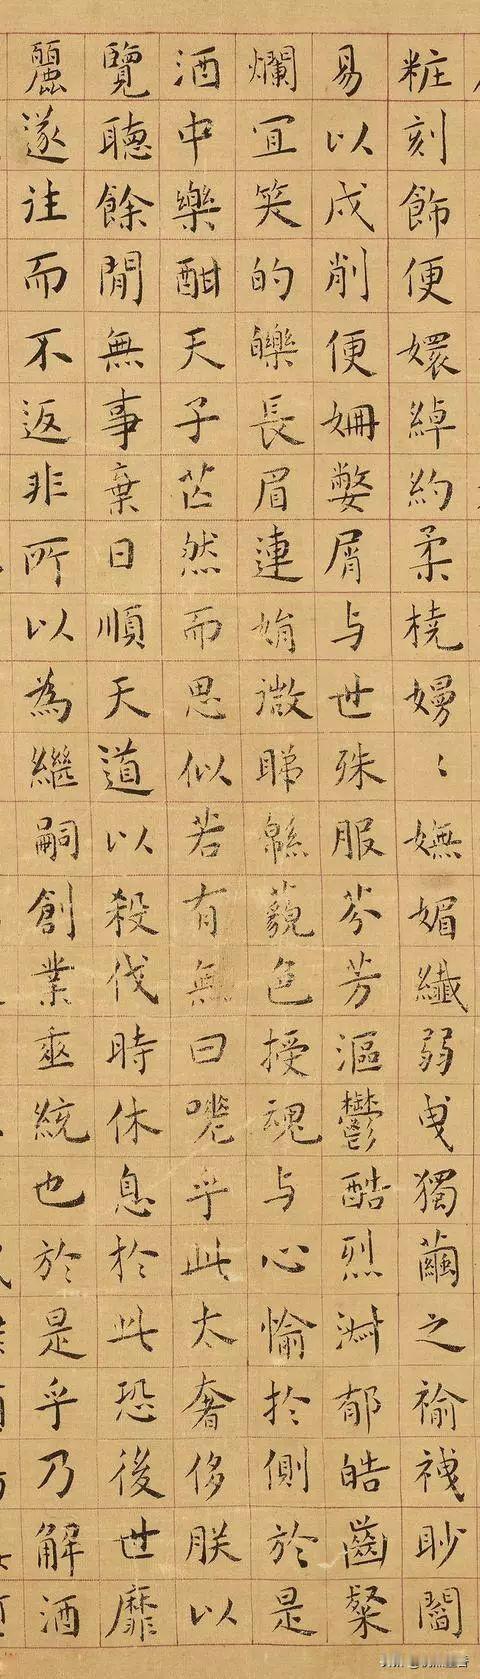 粧刻飾便嬛綽約柔橈嫚〻嫵媚纖弱曳獨繭之褕袣眇閻
易以戍削便姍嫳屑与世殊服芬芳漚鬱酷烈淑郁皓齒粲
爛宜笑的皪長眉連娟微睇緜藐色授魂与心愉於側於是
酒中樂酣天子芒然而思似若有無曰嗟乎此太奢侈朕以
覽聽餘閒無事棄日順天道以殺伐時休息於此恐後世靡
麗遂往而不返非所以為繼嗣創業垂統也於是乎乃解酒